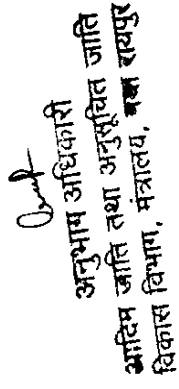 अनुभाग अधिकारी
आदिम जाति तथा अनुसूचित जाति
विकास विभाग, मंत्रालय, रायपुर